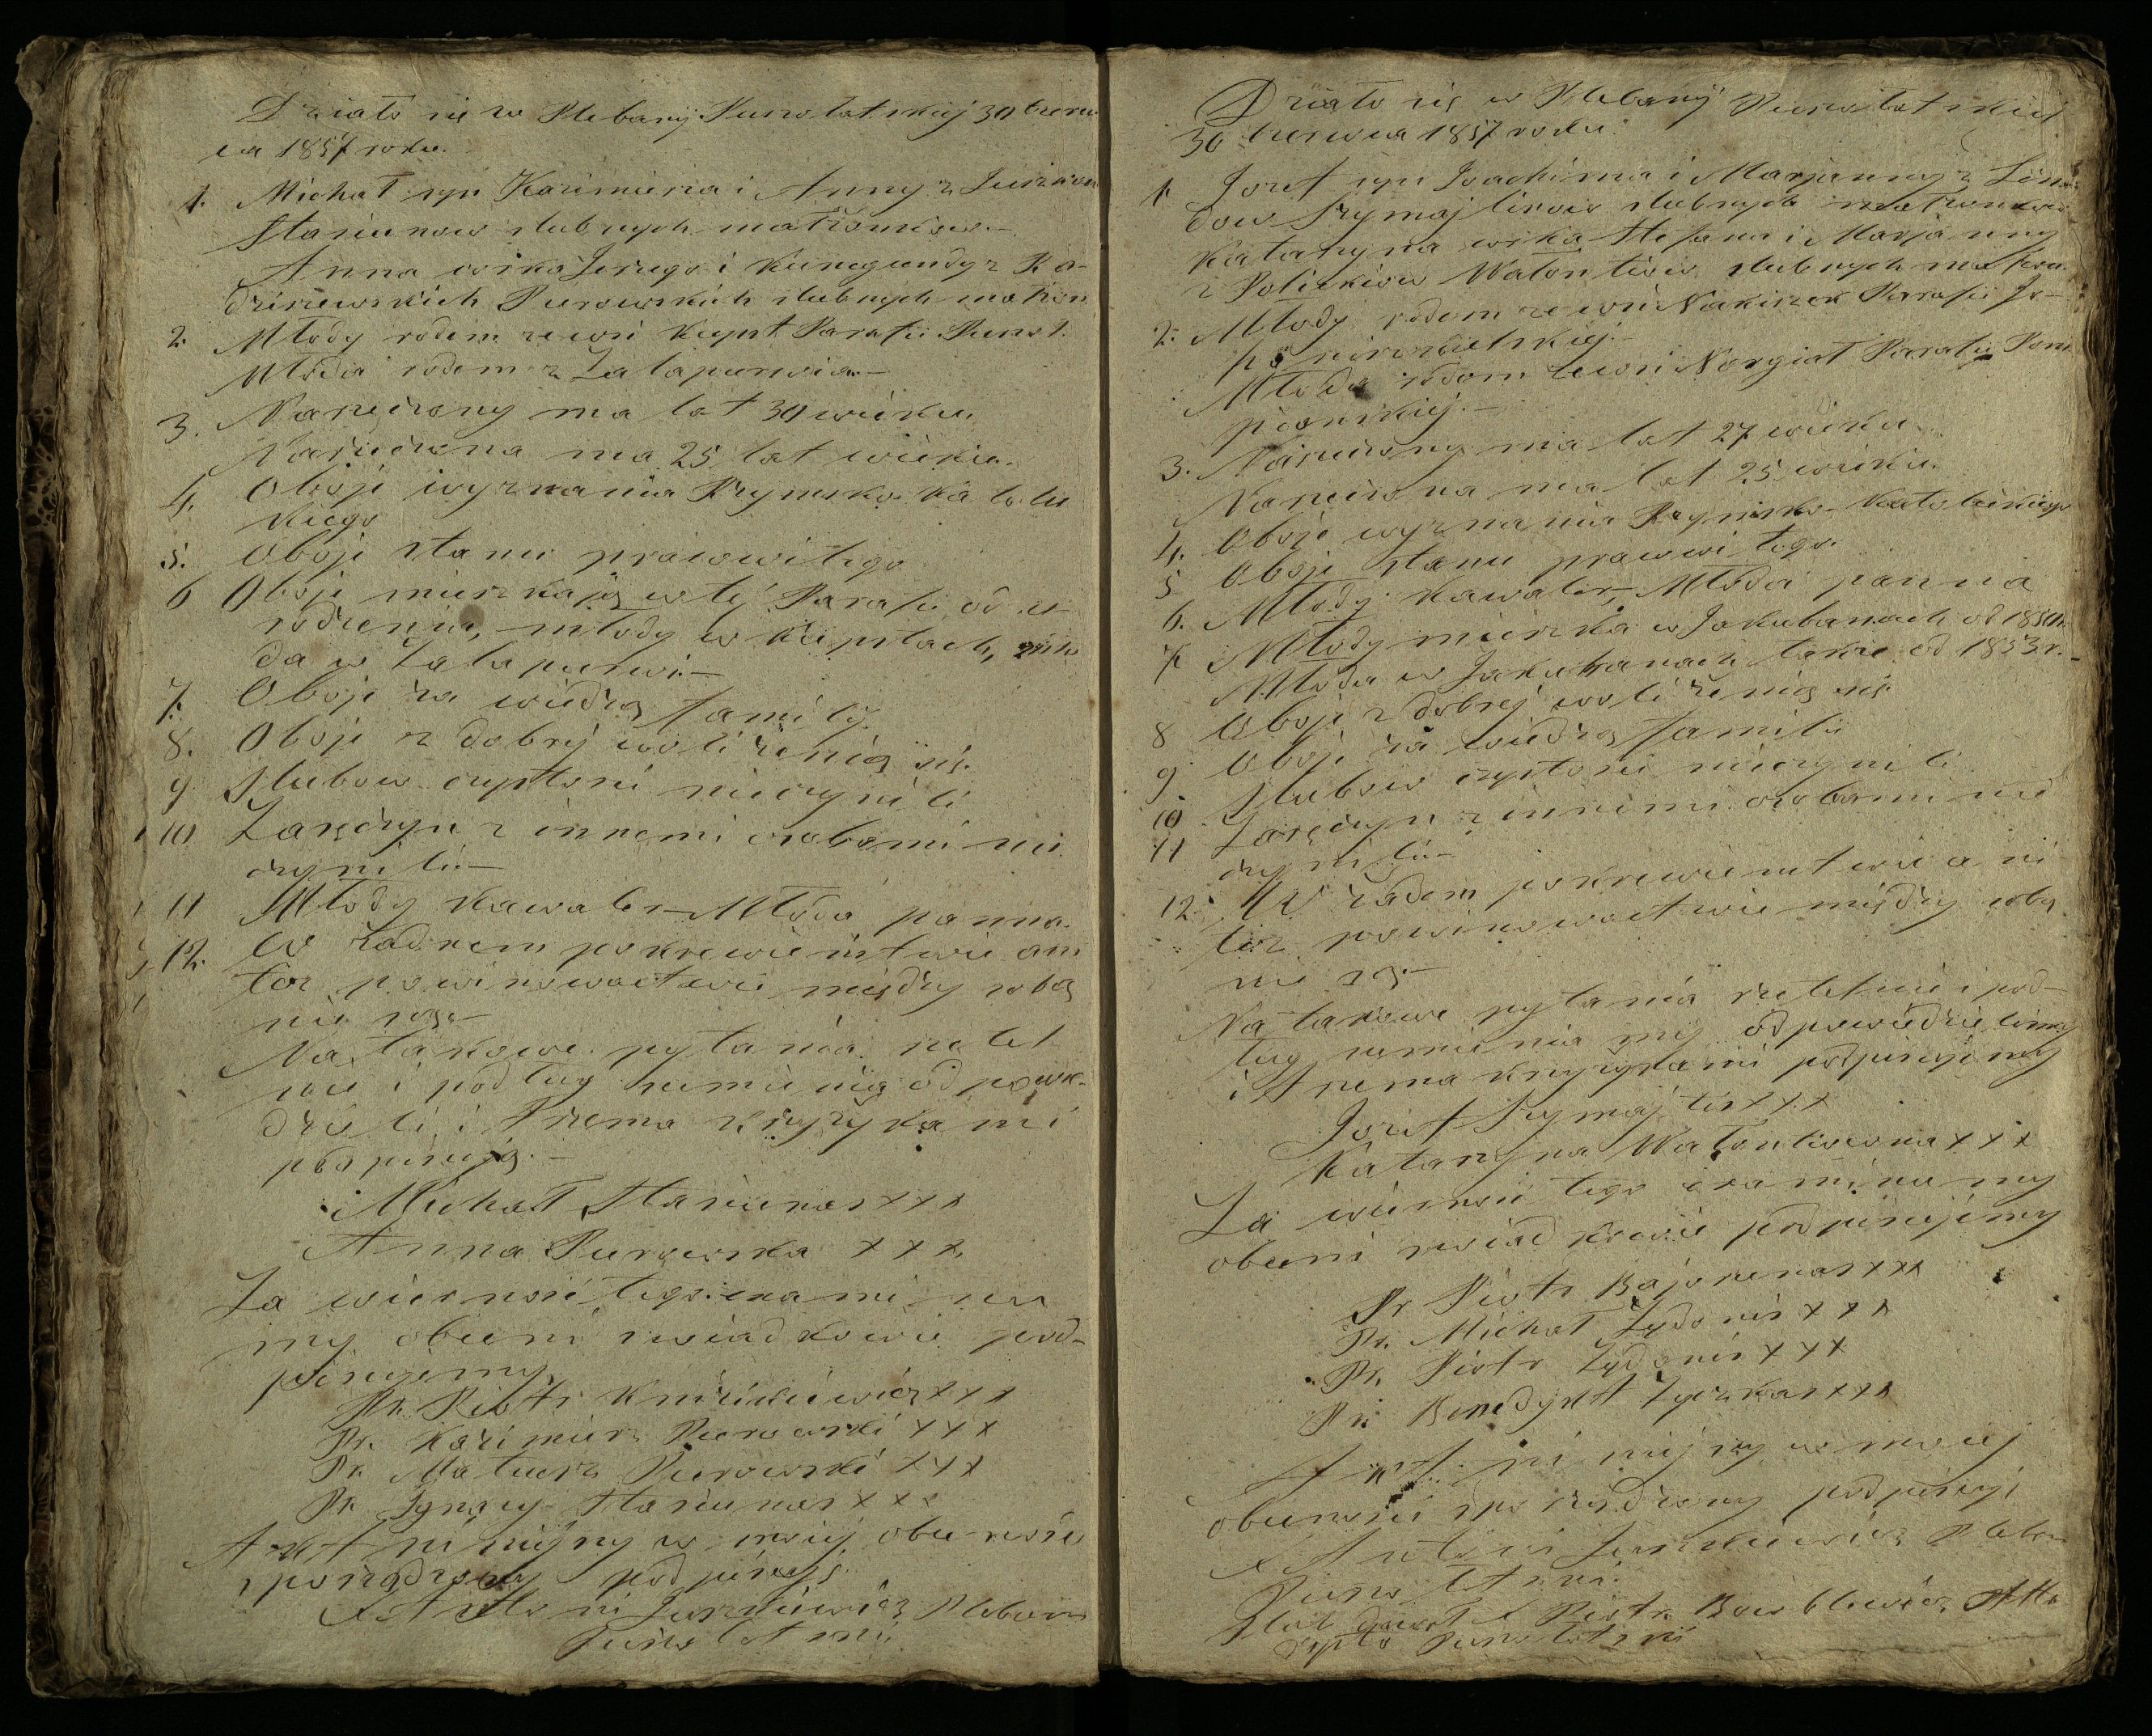 Działo się w Plebanij Puszołatskiej 30 czerw
ca 1857 roku.
1. Michał syn Kazimierza i Anny z
Stasiunow slubnych małżonkow.
Anna corka Jerzego i Kunegundy z Ra-
dziszewskich Purowskich slubnych małżon
2. Młody rodem ze wsi Kupst Parafii
Młoda rodem z Zatapurwia
3. Narzeczony ma lat 30 wieku.
Narzeczona ma 25 lat wieku.
4. Oboje wyznania Rzymsko Katolic
kiego
5. Oboje stanu prawowitego
6 Oboje mieszkają w tej Parafii od u-
rodzenia, młody w Kupstach, mło
da w Zatapurwi.
7. Oboje za wiedzą familij.
8. Oboje z dobrej woli żenią się.
9 Slubow czystosci nieczynili
10 Zaręczyn z innemi osobami nie
czynili
11 Młody Kawaler Młoda panna.
12. W żadnem pokrewieństwie ani
też powinowactwie między sobą
nie są.
Na takowe pytania rzetel
nie i podług sumienia odpowie-
dzieli i Trzema krzyżykami
podpisują.
Michał Stasiunas x x x
Anna Purowska x x x
Za wiernosć tego examinu
my obecni swiadkowie pod-
pisujemy
Pr. Piotr x x x
Pr. Kazimierz Purowski x x x
Pr. Mateusz Purowski x x x
Pr. Ignacy Stasiunas x x x
Akt niniejszy w mojej obecnosci
sporządzony podpisuję
X Antoni Jurkiewicz Pleban
Puszołatski
Działo się w Plebanij Puszołatskiej
30 czerwca 1857 roku.
1. Jozef syn Joachima i Maryanny z
dow Szymajtisow slubnych małżonkow
Katarzyna corka Stefana i Maryanny
z Walontisow slubnych małżon.
2. Młody rodem ze wsi Nakiszek Parafii Jo-
Młoda rodem ze wsi Norgiał Parafii Pom
piańskiej.
3. Narzeczony ma lat 27 wieku
Narzeczona ma lat 25 wieku.
4. Oboje wyznania Rzymsko-Katolickiego
5 Oboje stanu prawowitego.
6. Młody kawaler, Młoda panna
7. Młody mieszka w Jakubanach od
Młoda w Jakubanach także od 1853 r.
8 Oboje z dobrej woli żenią się
9. Oboje za wiedzą familii
10 Slubow czystosci nieczynili
11 Zaręczyn z innemi osobami nie
czynili
12. W żadnem pokrewieństwie ani
też powinowactwie między sobą
nie są.
Na takowe pytania rzetelnie i pod-
ług sumienia my odpowiedzielismy
i Trzema krzyżykami podpisujemy
Jozef Szymajtis x x x
Katarzyna Walontisowna x x x
Za wiernosć tego examinu my
obecni swiadkowie podpisujemy
Pr. Piotr Bajorunas x x x
Pr. Michał Żydonis x x x
Pr. Piotr Żydonis x x x
Pr. Benedykt x x x
Akt niniejszy w mojej
obecnosci sporządzony podpisuję
X Antoni Jurkiewicz Pleban
Puszołatski.
Slub dawał X Piotr Alta
rysta Puszołatski